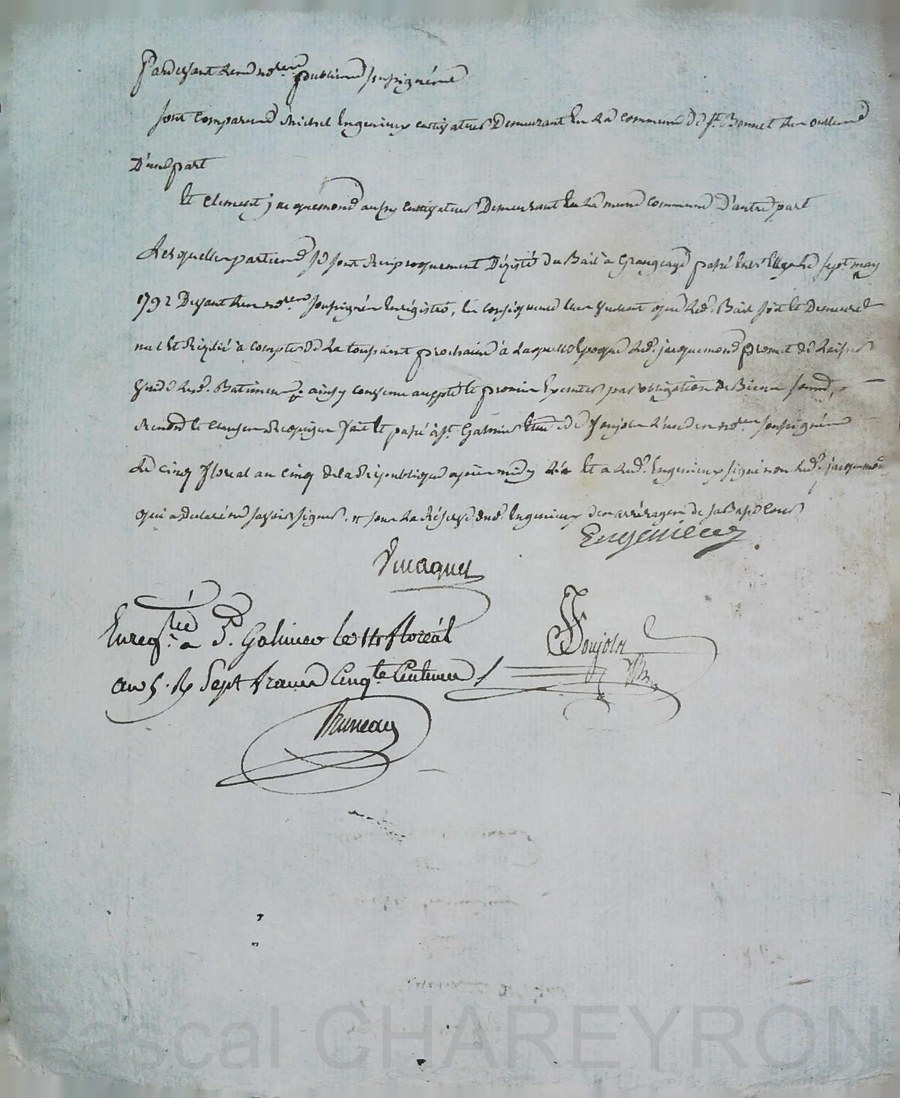 Pardevant les no.res publics soussignés
sont comparus Michel Engenieux cultivateur Demeurant En La commune de St. Bonnet Les oulles
D'une part
Et Clement jacquemond aussy Cultivateur Demeurant En La meme commune D'autre part
Lesquelles parties se sont Reciproquement Dépisté du Bail à Grangeage passé Entr'Elles le sept may
1792 Devant Les no.res soussignés Enrégistré, En conséquence Elles veulent que Led. Bail soit et Demeure
nul Et résilié à compter de La toussaint prochaine à Laquelle Epoque Led. jacquemond promet de Laisser
vuide Led. Batiment ainsy convenu accepté et promis Executer par obligation de Biens soumis,
fait et passé à St. Galmier Etude de Jonjoly L'un des no.res soussignés
Le cinq floreal an cinq de la République après midy Lû Et a Led. Engenieux signé non Led. jacquemond
qui a Declaré ne savoir signer. et sous La Réserve dud. Engenieux des arrérages de
Engenieux
Vmagnet
Enregtré à St. Galmier le 14 floréal
an 5. R Sept francs Cinqte Centimes
Jonjoly
Bruneau
Pascal CHAREYRON